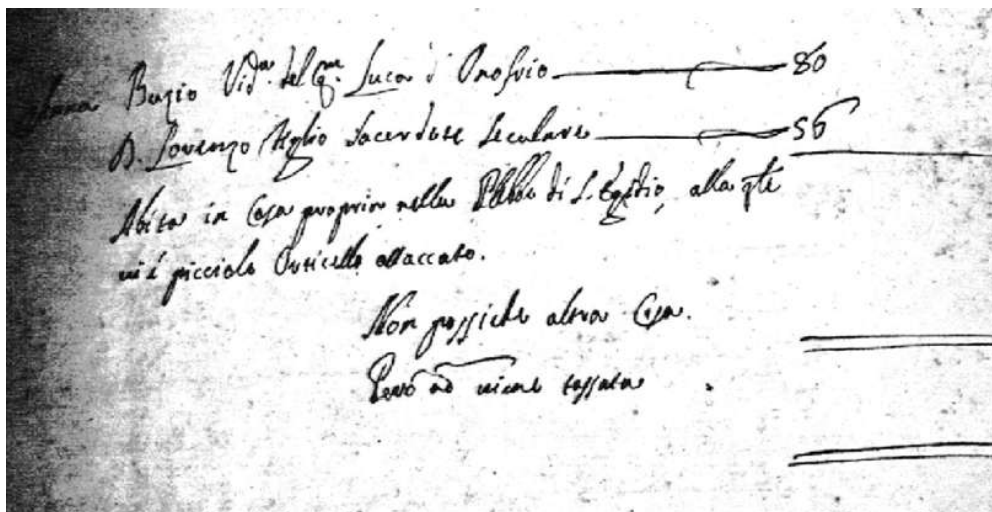 Anna Bazio Vid.a del q.m Luca d'Onofrio 80
D. Lorenzo figlio Sacerdote Secolare 56
Abita in Casa propria nella di S. Egidio, alla qle
vi è picciolo Orticello attaccato.
Non possiede altra Casa.
Però non viene tassata